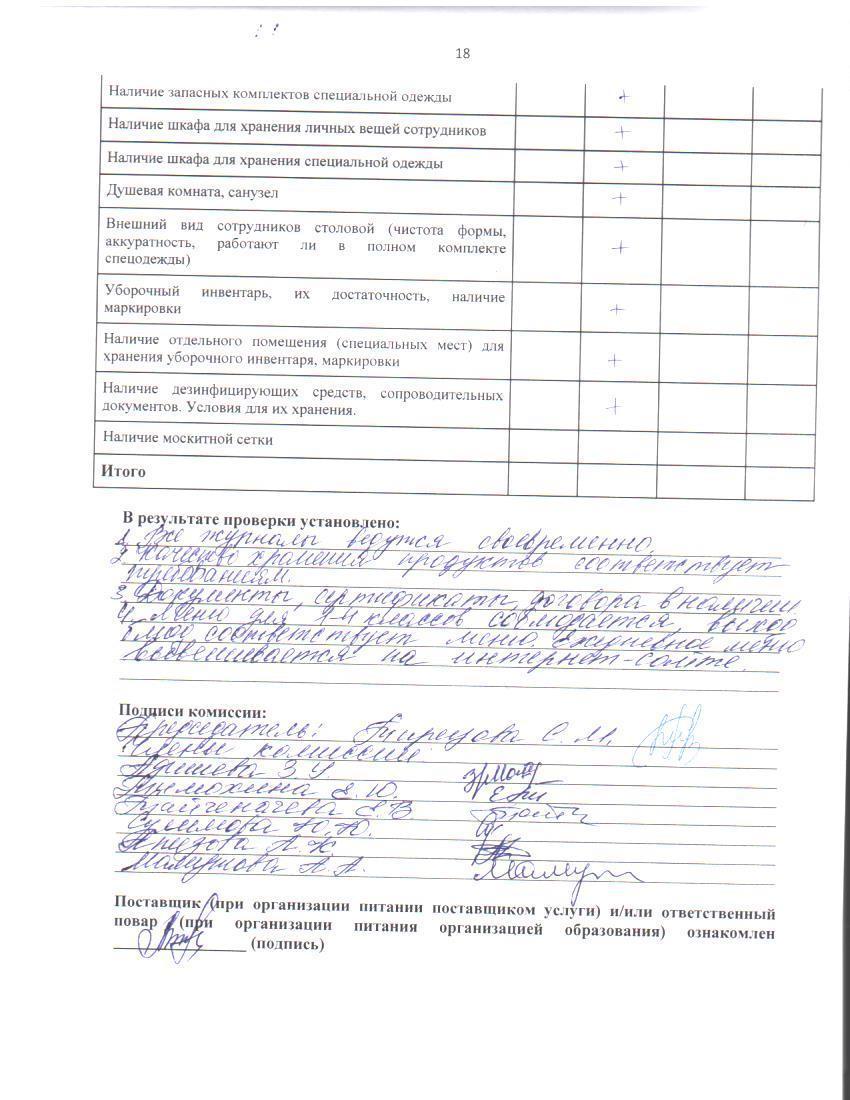 18
Наличие запасных комплектов специальной одежды +
Наличие шкафа для хранения личных вещей сотрудников +
Наличие шкафа для хранения специальной одежды +
Душевая комната, санузел +
Внешний вид сотрудников столовой (чистота формы,
аккуратность, работают ли в полном комплекте +
спецодежды)
Уборочный инвентарь, их достаточность, наличие
маркировки +
Наличие отдельного помещения (специальных мест) для
хранения уборочного инвентаря, маркировки +
Наличие дезинфицирующих средств, сопроводительных
документов. Условия для их хранения. +
Наличие москитной сетки
Итого
В результате проверки установлено:
1. Все журналы ведутся своевременно.
2. Качество хранения продуктов соответствует
требованиям.
3. Документы, сертификаты, договора в наличии
4. Меню для 1-4 классов соблюдается, выход
блюд соответствует меню. Ежедневное меню
вывешивается на интернет-сайте.
Подписи комиссии:
Председатель: С. М.
Члены комиссии:
З. У.
Е. Ю.
Е. В.
Ю. Ю.
А. К.
А. А.
Поставщик (при организации питании поставщиком услуги) и/или ответственный
повар (при организации питания организацией образования) ознакомлен
(подпись)